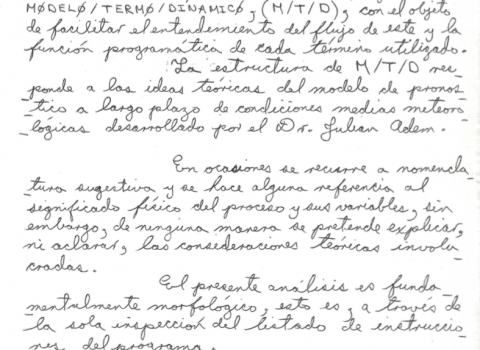 MØDELØ/TERMØ/DINAMICØ, (M/T/D), con el objeto
de facilitar el entendimiento del flujo de este y la
función programática de cada termino utilizado.
La estructura de M/T/D res_
_ponde a las ideas teóricas del modelo de pronos_
_tico a largo plazo de condiciones medias meteoro_
_lógicas desarrollado por el Dr. Julian Adem.
En ocasiones se recurre a nomencla_
_tura sugestiva y se hace alguna referencia al
significado físico del proceso y sus variables, sin
embargo, de ninguna manera se pretende explicar,
ni aclarar, las consideraciones teóricas involu_
cradas.
El presente análisis es funda_
_mentalmente morfológico, esto es, a través de
la sola inspección del listado de instruccio_
_nes del programa.